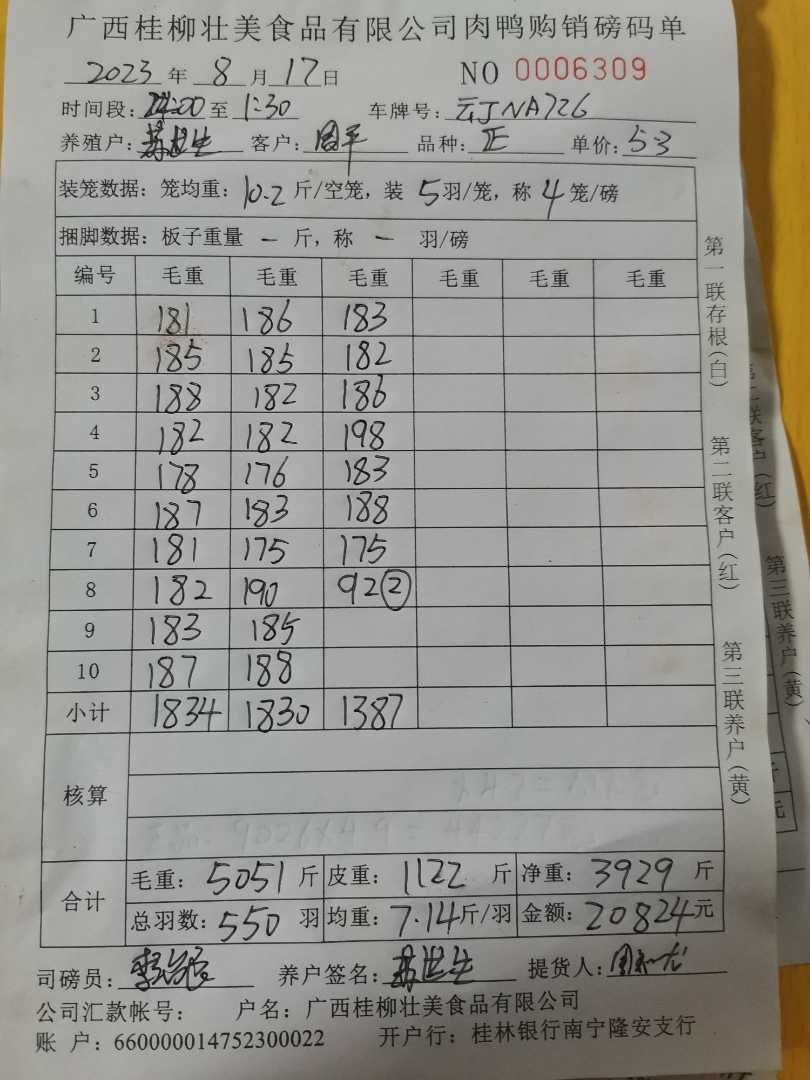 广西桂柳壮美食品有限公司肉鸭购销磅码单
2023年8月17日 NO 0006309
时间段:24:00至1:30 车牌号:云JNA726
养殖户: 客户:周平 品种:正 单价:5.3
装笼数据:笼均重:10.2斤/空笼,装5羽/笼,称4笼/磅
捆脚数据:板子重量 — 斤,称 — 羽/磅
编号 毛重 毛重 毛重 毛重 毛重 毛重
1 181 186 183
2 185 185 182
3 188 182 186
4 182 182 198
5 178 176 183
6 187 183 188
7 181 175 175
8 182 190 92②
9 183 185
10 187 188
小计 1834 1830 1387
核算
合计 毛重:5051斤 皮重:1122斤 净重:3929斤
总羽数:550羽 均重:7.14斤/羽 金额:20824元
司磅员: 养户签名: 提货人:
公司汇款帐号: 户名:广西桂柳壮美食品有限公司
账 户:660000014752300022 开户行:桂林银行南宁隆安支行
第一联存根(白)
第二联客户(红)
第三联养户(黄)
第二联客户(红)
第三联养户(黄)